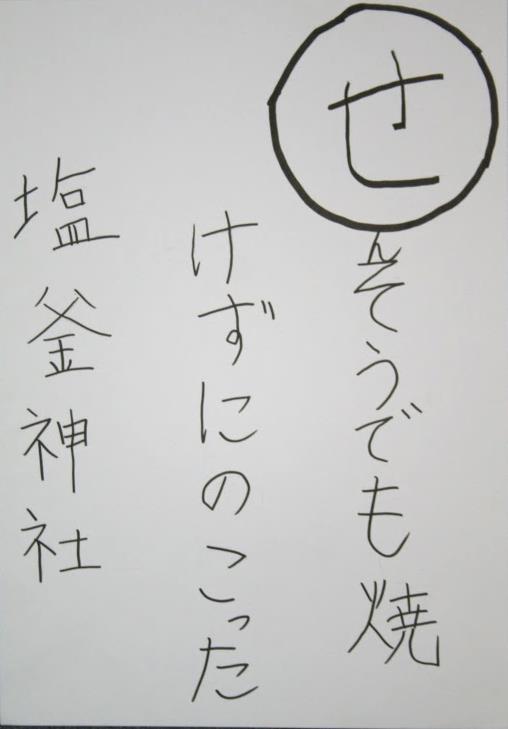 せんそうでも焼
けずにのこった
塩釜神社